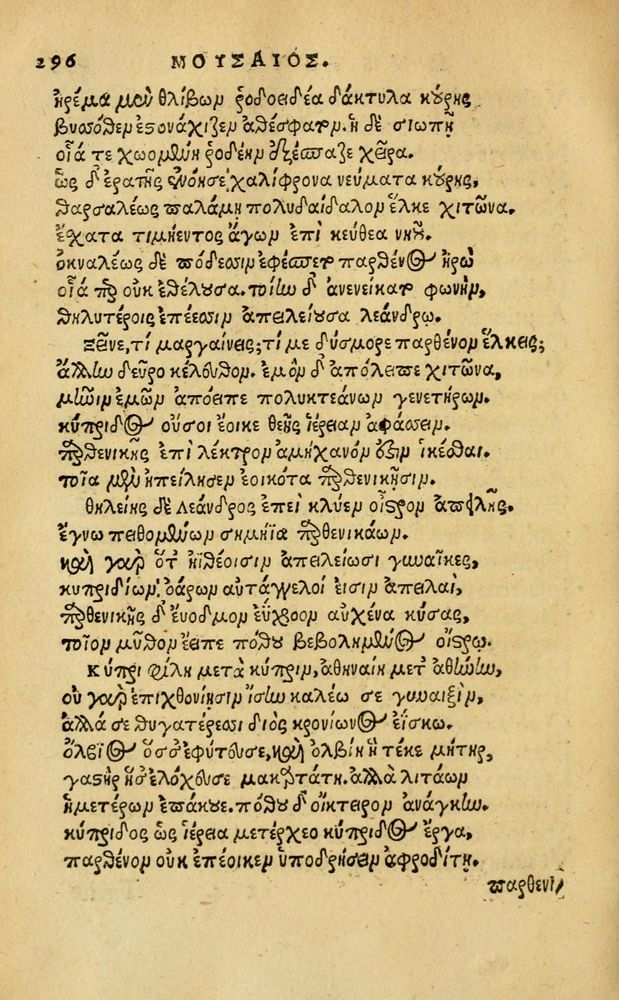 296 ΜΟΥΣΑΙΟΣ.
ἠρέμα μὲν θλίβων ῥοδοειδέα δάκτυλα κούρης
βυσόθεν ἐστονάχιζεν ἀθέσφατον. ἡ δὲ σιωπῇ
οἷά τε χωομένη ῥοδέην ἐξέσπασε χεῖρα.
ὡς δ' ἐρατῆς ἐνόησε χαλίφρονα νεύματα κούρης,
θαρσαλέως παλάμῃ πολυδαίδαλον ἕλκε χιτῶνα.
ἔσχατα τιμήεντος ἄγων ἐπὶ κεύθεα νηοῦ.
ὀκναλέως δὲ πόδεσσιν ἐφέσπετο παρθένος Ἡρὼ
οἷά περ οὐκ ἐθέλουσα. τοίην δ' ἀνενείκατο φωνὴν,
θηλυτέροις ἐπέεσσιν ἀπειλείουσα λεάνδρῳ.
Ξεῖνε, τί μαργαίνεις; τί με δύσμορε παρθένον ἕλκεις;
ἄλλην δεῦρο κέλευθον. ἐμὸν δ' ἀπόλειπε χιτῶνα,
μῆνιν ἐμῶν ἀπόειπε πολυκτεάνων γενετήρων.
κύπριδος οὔ σοι ἔοικε θεῆς ἱέρειαν ἀφάσσειν.
παρθενικῆς ἐπὶ λέκτρον ἀμήχανόν ἐξιν ἱκέσθαι.
τοῖα μὲν ἠπείλησεν ἐοικότα παρθενικῇσιν.
θηλείης δὲ Λεάνδρος ἐπεὶ κλύεν οἶστρον ἀπειλῆς.
ἔγνω πειθομένων σημήϊα παρθενικάων.
καὶ γὰρ ὅτ' ἠϊθέοισιν ἀπειλείωσι γυναῖκες,
κυπριδίων ὀάρων αὐτάγγελοί εἰσιν ἀπειλαί,
παρθενικῆς δ' εὔοδμον εὔχροον αὐχένα κύσας,
τοῖον μῦθον ἔειπε πόθου βεβολημένος οἴστρῳ.
Κύπρι φίλη μετὰ κύπριν, ἀθηναίη μετ' ἀθήνην,
οὐ γὰρ ἐπιχθονίῃσιν ἴσην καλέω σε γυναιξὶν,
ἀλλά σε θυγατέρεσσι διὸς κρονίωνος ἐΐσκω.
ὄλβιος ὅς σ' ἐφύτευσε, καὶ ὀλβίη ἣ τέκε μήτηρ,
γαστὴρ ἥ σ' ἐλόχευσε μακαρτάτη. ἀλλὰ λιτάων
ἡμετέρων ἐπάκουε. πόθου δ' οἴκτειρον ἀνάγκην.
κύπριδος ὡς ἱέρεια μετέρχεο κύπριδος ἔργα,
παρθένον οὐκ ἐπέοικεν ὑποδρήσσειν ἀφροδίτῃ.
παρθενι